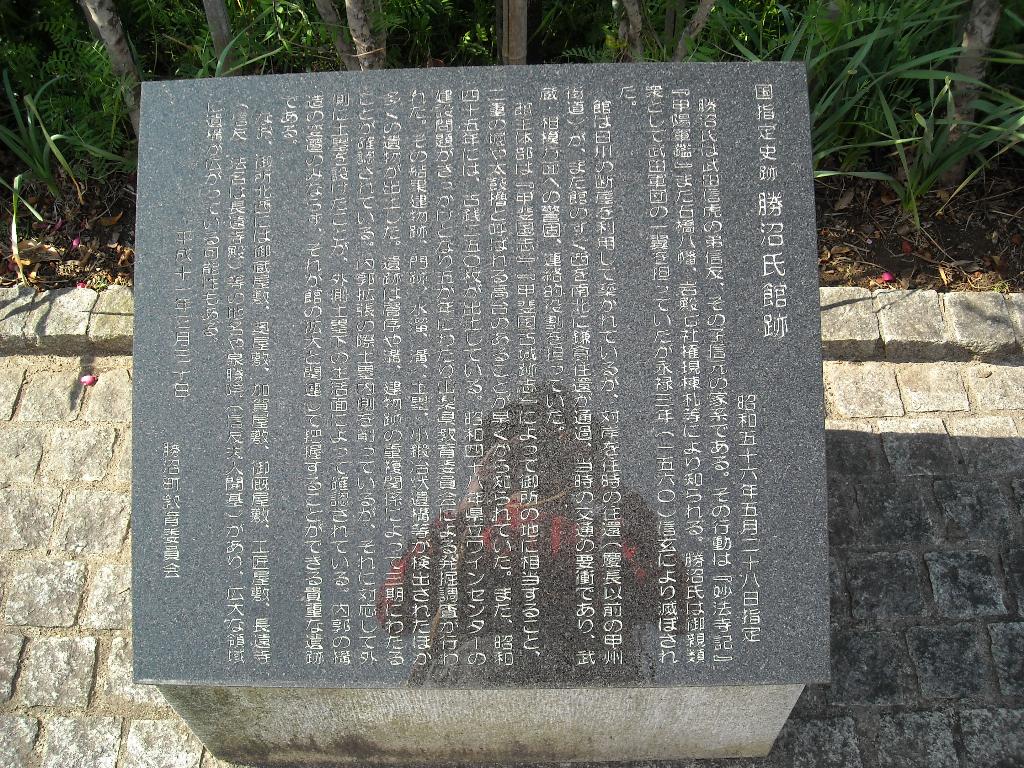 国指定史跡 勝沼氏館跡
昭和五十六年五月二十八日指定
勝沼氏は武田信虎の弟信友、その子信元の家系である。その行動は『妙法寺記』
『甲陽軍鑑』また石橋八幡、岩殿七社権現棟札等により知られる。勝沼氏は御親類
衆として武田軍団の一翼を担っていたが永禄三年(一五六〇)信玄により滅ぼされ
た。
館は日川の断崖を利用して築かれているが、対岸を往時の往還(慶長以前の甲州
街道)が、また館のすぐ西を南北に鎌倉往還が通過、当時の交通の要衝であり、武
蔵・相模方面への警固、連絡的役割を担っていた。
郭主体部は『甲斐国志』『甲斐国古城跡志』によって御所の地に相当すること、
二重の堀や太鼓櫓と呼ばれる高台のあることが早くから知られていた。また、昭和
四十五年には、古銭二五〇枚が出土している。昭和四十八年県立ワインセンターの
建設問題がきっかけとなり五か年にわたり山梨県教育委員会による発掘調査が行わ
れた。その結果建物跡、門跡、水溜、溝、土塁、小鍛冶状遺構等が検出されたほか
多くの遺物が出土した。遺跡は層序や溝、建物跡の重複関係によって三期にわたる
ことが確認されている。内郭拡張の際土塁内側を削っているが、それに対応して外
側に土塁を設けたことが、外側土塁下の生活面によって確認されている。内郭の構
造の変遷のみならず、それが館の拡大と関連して把握することができる貴重な遺跡
である。
なお、御所北西には御蔵屋敷、奥屋敷、加賀屋敷、御厩屋敷、工匠屋敷、長遠寺
(信友 法名は長遠寺殿)等の地名や泉勝院(信友夫人開基)があり、広大な領域
に遺構が広がっている可能性もある。
平成十一年三月三十日
勝沼町教育委員会